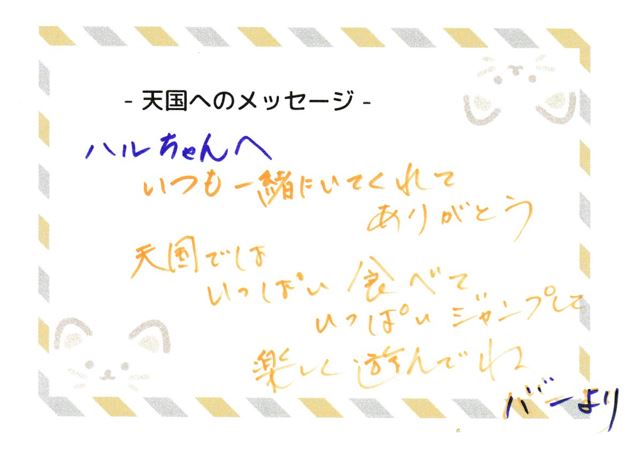 - 天国へのメッセージ -
ハルちゃんへ
いつも一緒にいてくれて
ありがとう
天国では
いっぱい食べて
いっぱいジャンプして
楽しく遊んでね
バーバーより